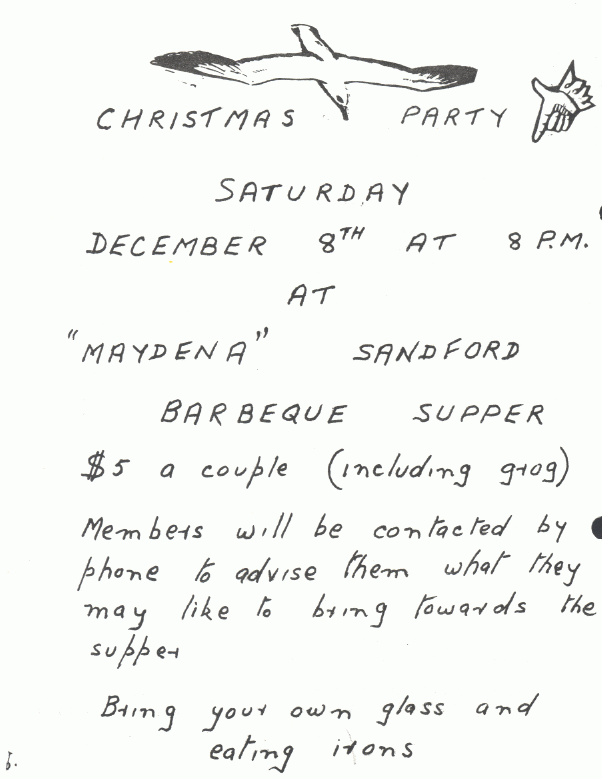 CHRISTMAS PARTY
SATURDAY
DECEMBER 8TH AT 8 P.M.
AT
"MAYDENA" SANDFORD
BARBEQUE SUPPER
$5 a couple (including grog)
Members will be contacted by
phone to advise them what they
may like to bring towards the
supper
Bring your own glass and
eating irons
5.